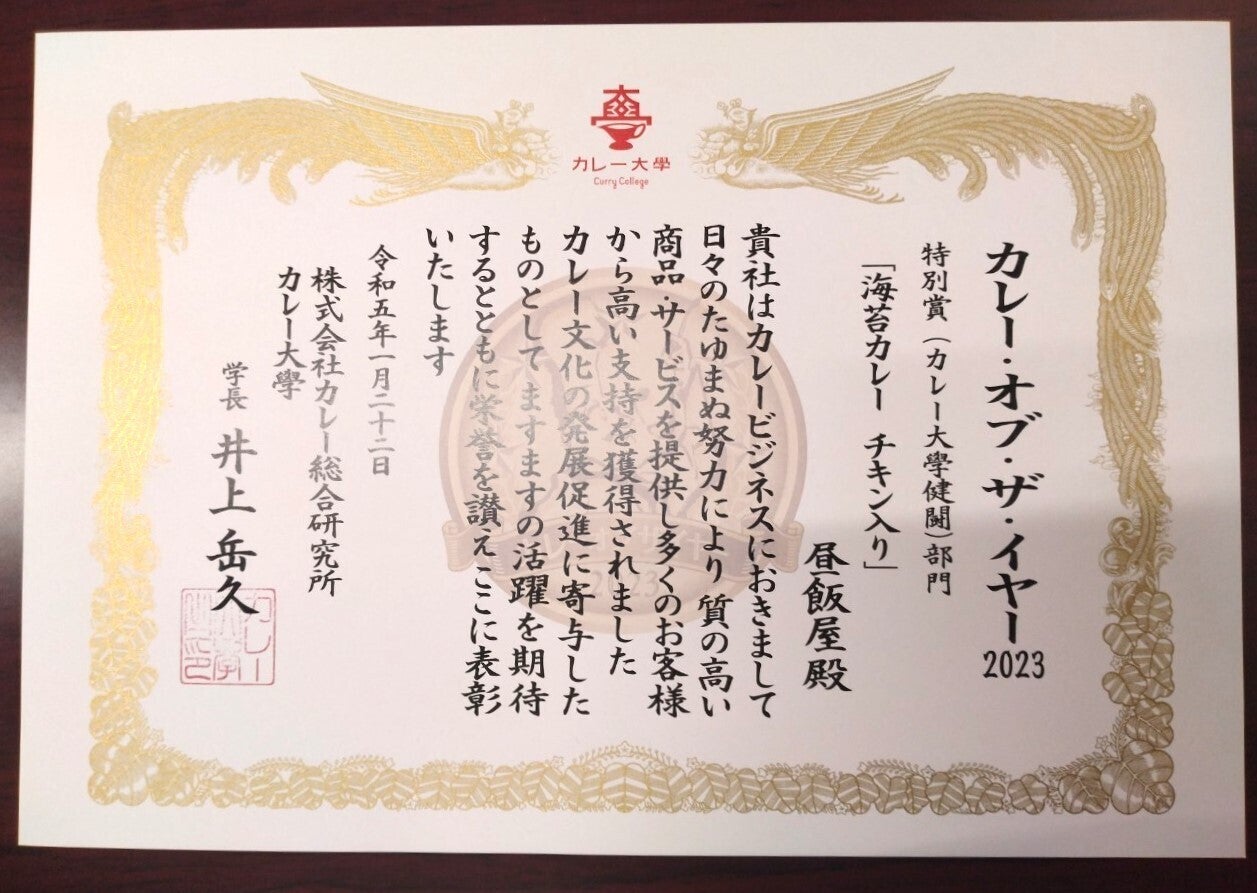 カレー大學
Curry College
カレー・オブ・ザ・イヤー2023
特別賞（カレー大學健闘）部門
「海苔カレー　チキン入り」
昼飯屋殿
貴社はカレービジネスにおきまして
日々のたゆまぬ努力により質の高い
商品・サービスを提供し多くのお客様
から高い支持を獲得されました
カレー文化の発展促進に寄与した
ものとしてますますの活躍を期待
するとともに栄誉を讃えここに表彰
いたします
令和五年一月二十二日
株式会社カレー総合研究所
カレー大學
学長　井上岳久